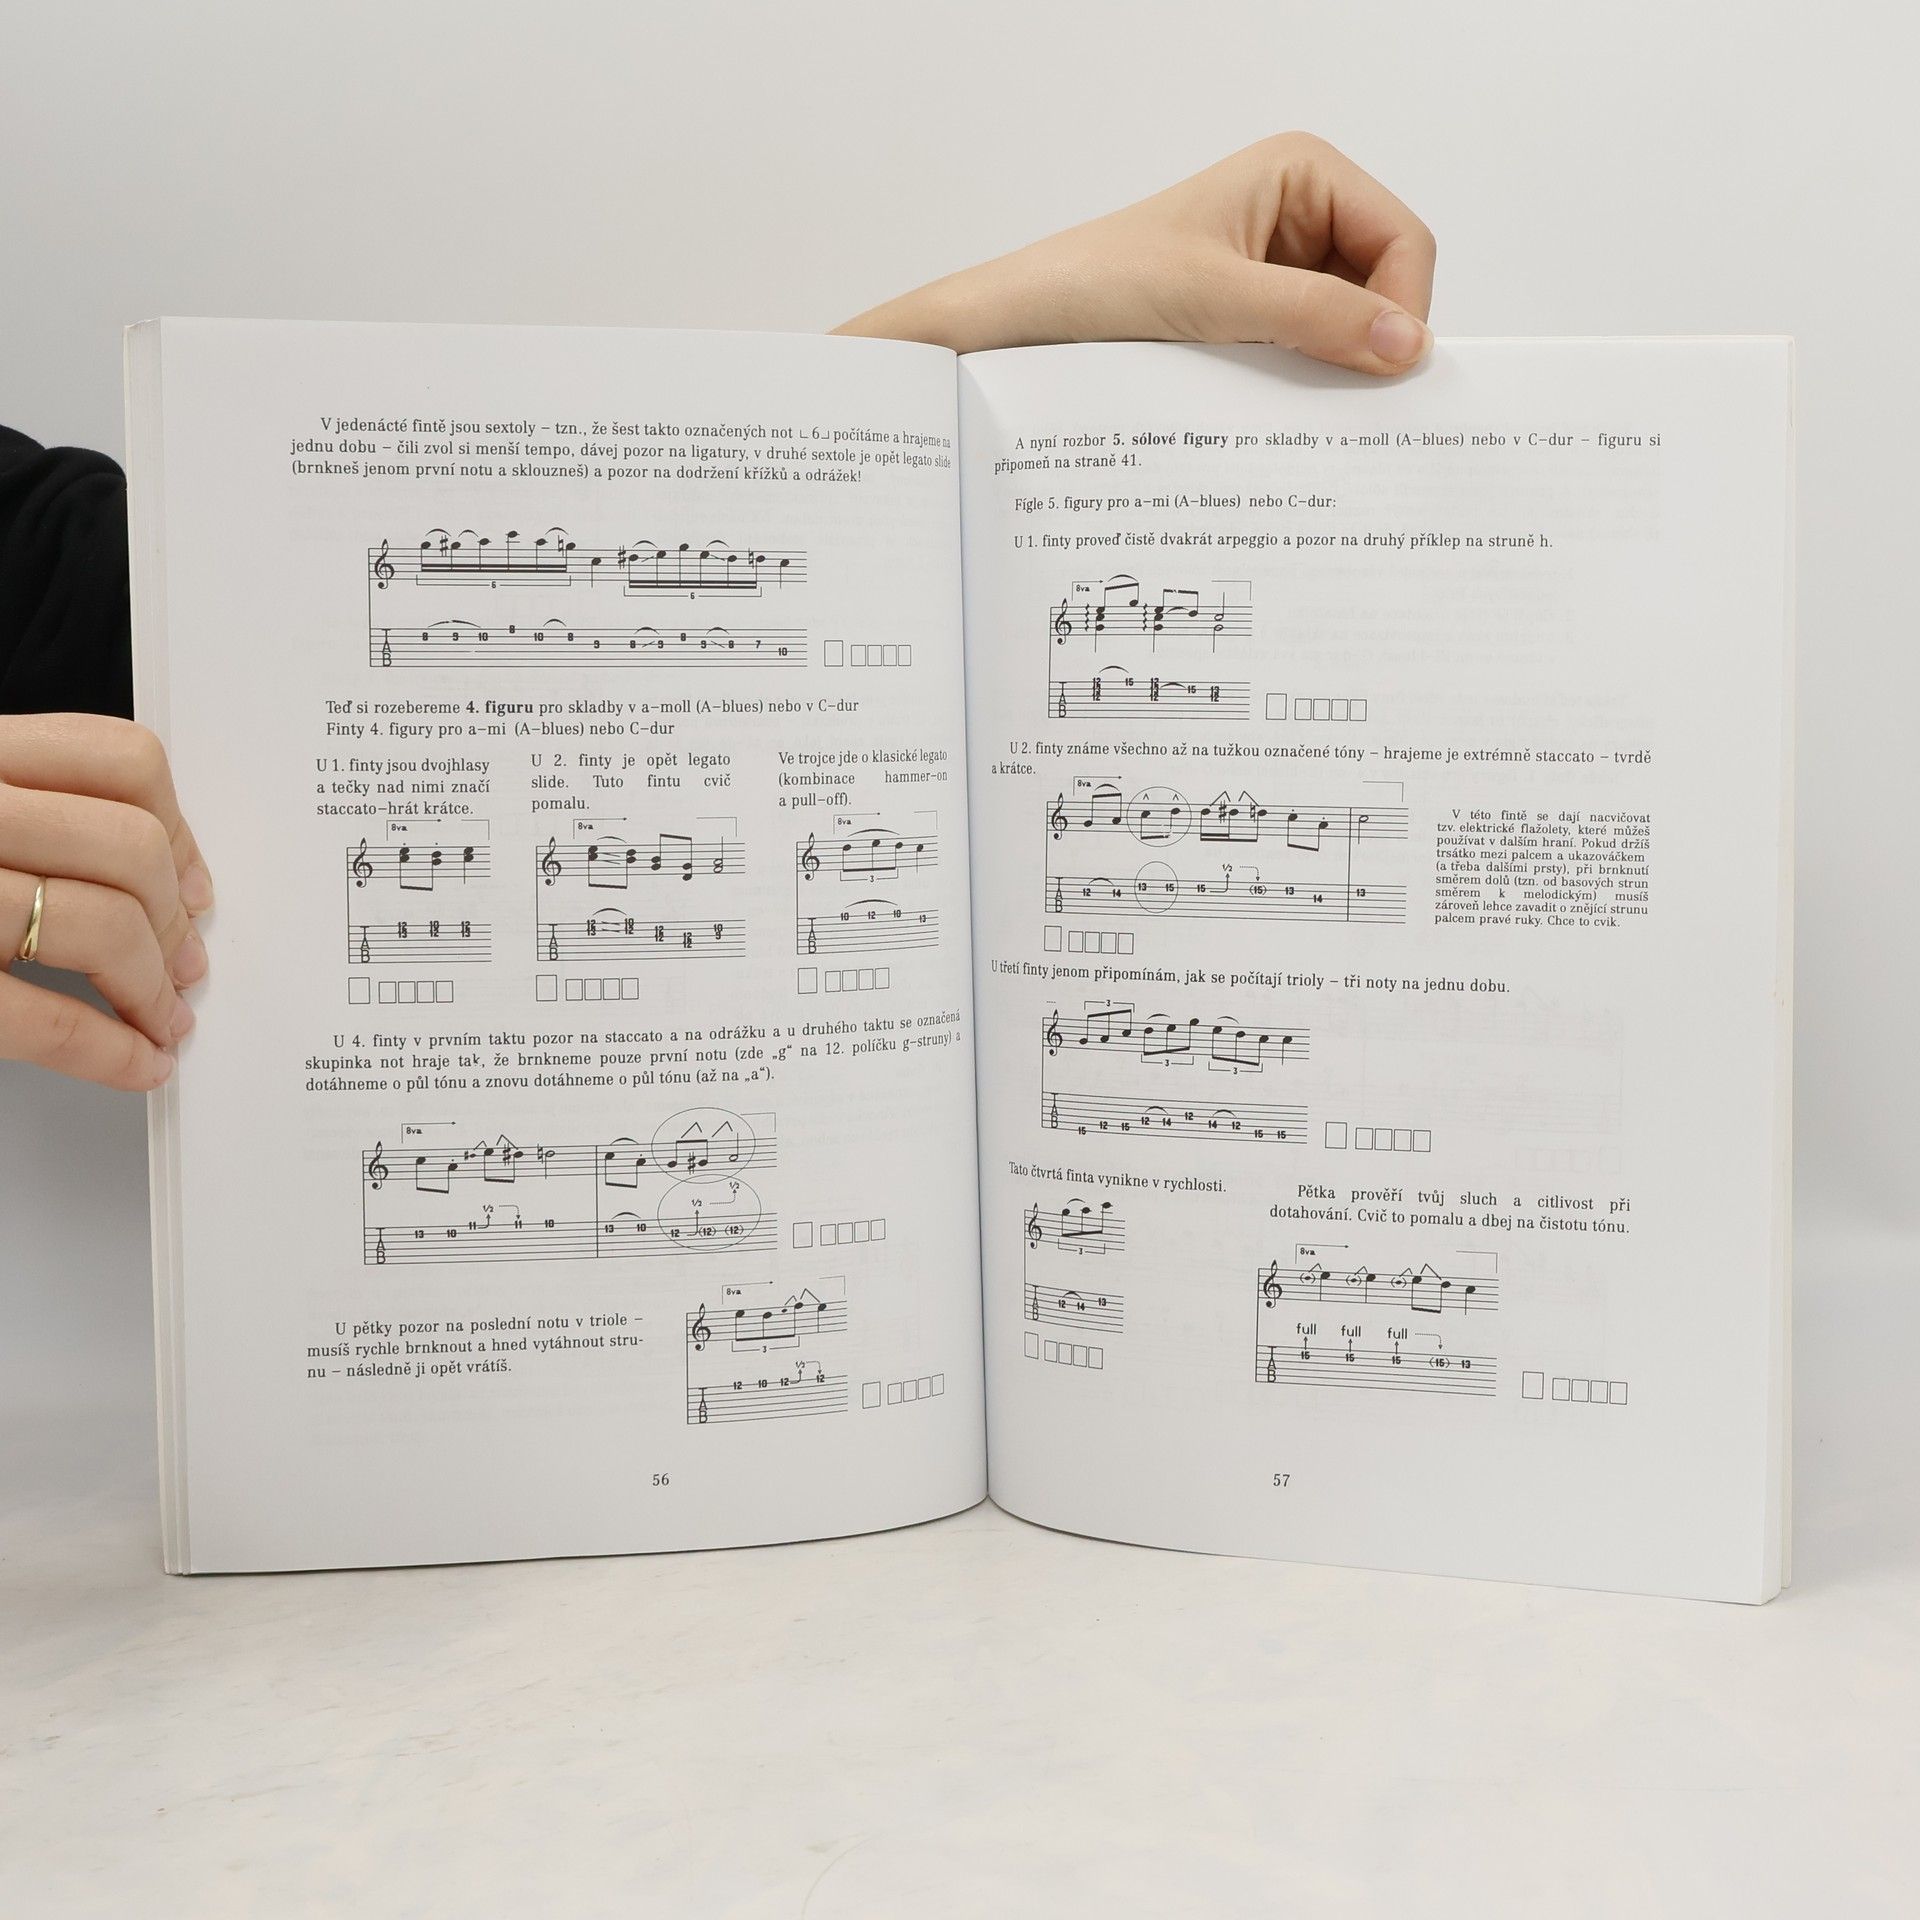 V jedenácté fintě jsou sextoly – tzn., že šest takto označených not ∟6⅃ počítáme a hrajeme na
jednu dobu – čili zvol si menší tempo, dávej pozor na ligatury, v druhé sextole je opět legato slide
(brnkneš jenom první notu a sklouzneš) a pozor na dodržení křížků a odrážek!
6
6
8 9 10 8 10 8 9 8 9 8 9 8 7 10
Teď si rozebereme 4. figuru pro skladby v a–moll (A–blues) nebo v C–dur
Finty 4. figury pro a–mi (A–blues) nebo C–dur
U 1. finty jsou dvojhlasy
a tečky nad nimi značí
staccato–hrát krátce.
8va
U 2. finty je opět legato
slide. Tuto fintu cvič
pomalu.
8va
Ve trojce jde o klasické legato
(kombinace hammer–on
a pull–off).
8va
3
10 12 10 13
U 4. finty v prvním taktu pozor na staccato a na odrážku a u druhého taktu se označená
skupinka not hraje tak, že brnkneme pouze první notu (zde „g“ na 12. políčku g–struny) a
dotáhneme o půl tónu a znovu dotáhneme o půl tónu (až na „a“).
8va
½ ½ ½
13 10 11 11 10 13 10 12 (12) (12)
U pětky pozor na poslední notu v triole –
musíš rychle brnknout a hned vytáhnout stru-
nu – následně ji opět vrátíš.
8va
3
½
12 10 12 12
56
A nyní rozbor 5. sólové figury pro skladby v a–moll (A–blues) nebo v C–dur – figuru si
připomeň na straně 41.
Fígle 5. figury pro a–mi (A–blues) nebo C–dur:
U 1. finty proveď čistě dvakrát arpeggio a pozor na druhý příklep na struně h.
8va
U 2. finty známe všechno až na tužkou označené tóny – hrajeme je extrémně staccato – tvrdě
a krátce.
8va
½
12 14 13 15 15 (15) 13 14 13
V této fintě se dají nacvičovat
tzv. elektrické flažolety, které můžeš
používat v dalším hraní. Pokud držíš
trsátko mezi palcem a ukazováčkem
(a třeba dalšími prsty), při brnknutí
směrem dolů (tzn. od basových strun
směrem k melodickým) musíš
zároveň lehce zavadit o znějící strunu
palcem pravé ruky. Chce to cvik.
U třetí finty jenom připomínám, jak se počítají trioly – tři noty na jednu dobu.
3
3
3
15 12 15 12 14 12 14 12 15 15
Tato čtvrtá finta vynikne v rychlosti.
3
12 14 13
Pětka prověří tvůj sluch a citlivost při
dotahování. Cvič to pomalu a dbej na čistotu tónu.
8va
full full full
15 15 15 (15) 13
57